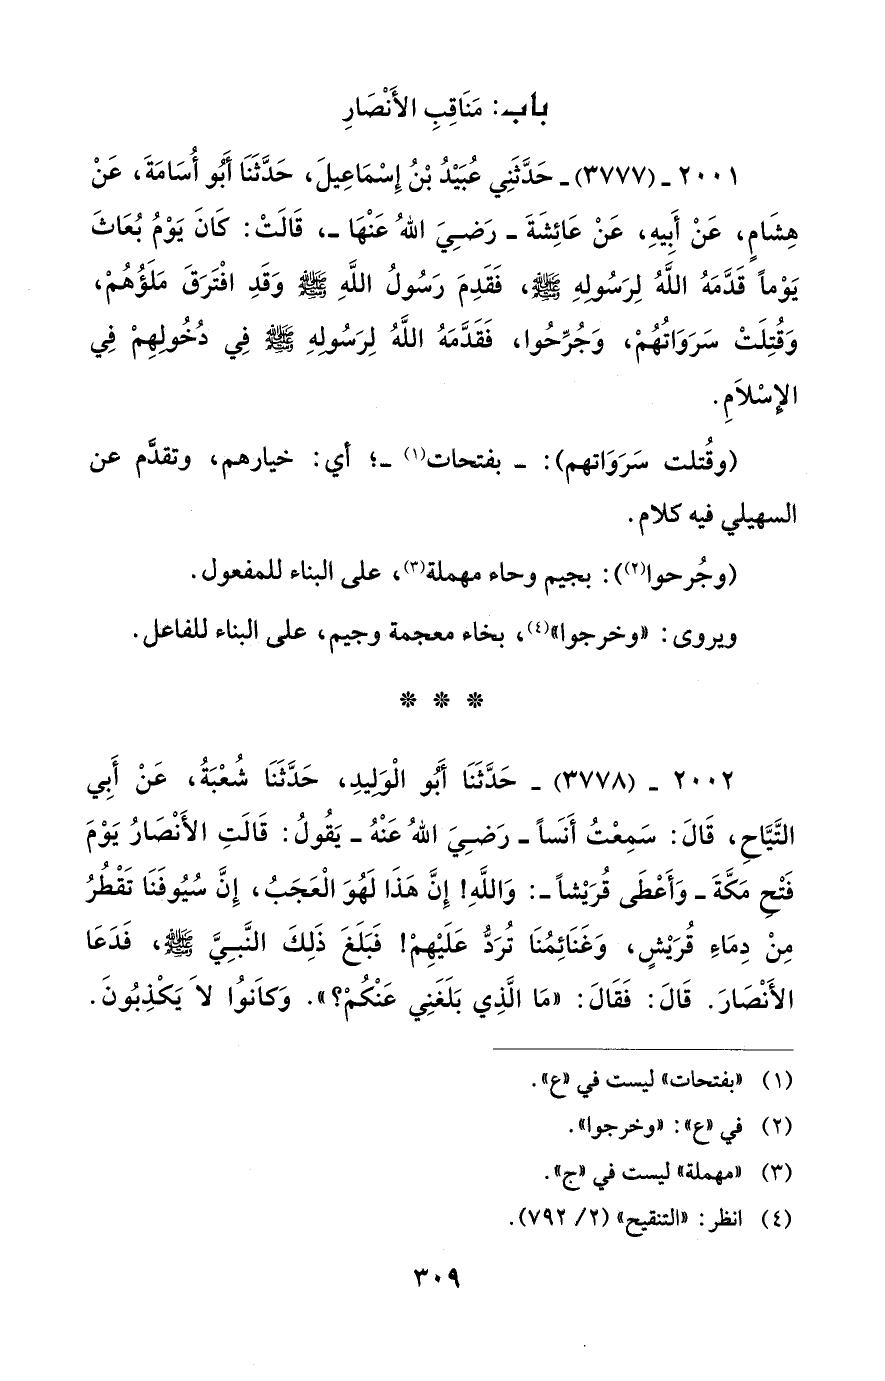 باب: مَنَاقِبِ الأَنْصَارِ
٢٠٠١ ـ (٣٧٧٧) ـ حَدَّثَنِي عُبَيْدُ بْنُ إِسْمَاعِيلَ، حَدَّثَنَا أَبُو أُسَامَةَ، عَنْ
هِشَامٍ، عَنْ أَبِيهِ، عَنْ عَائِشَةَ ـ رَضِيَ اللهُ عَنْهَا ـ، قَالَتْ: كَانَ يَوْمُ بُعَاثَ
يَوْماً قَدَّمَهُ اللَّهُ لِرَسُولِهِ ﷺ، فَقَدِمَ رَسُولُ اللَّهِ ﷺ وَقَدِ افْتَرَقَ مَلَؤُهُمْ،
وَقُتِلَتْ سَرَوَاتُهُمْ، وَجُرِّحُوا، فَقَدَّمَهُ اللَّهُ لِرَسُولِهِ ﷺ فِي دُخُولِهِمْ فِي
الإِسْلاَمِ.
(وقُتلت سَرَوَاتهم): ـ بفتحات(١) ـ؛ أي: خيارهم، وتقدَّم عن
السهيلي فيه كلام.
(وجُرحوا(٢)): بجيم وحاء مهملة(٣)، على البناء للمفعول.
ويروى: «وخرجوا»(٤)، بخاء معجمة وجيم، على البناء للفاعل.
* * *
٢٠٠٢ ـ (٣٧٧٨) ـ حَدَّثَنَا أَبُو الْوَلِيدِ، حَدَّثَنَا شُعْبَةُ، عَنْ أَبِي
التَّيَّاحِ، قَالَ: سَمِعْتُ أَنَساً ـ رَضِيَ اللهُ عَنْهُ ـ يَقُولُ: قَالَتِ الأَنْصَارُ يَوْمَ
فَتْحِ مَكَّةَ ـ وَأَعْطَى قُرَيْشاً ـ: وَاللَّهِ! إِنَّ هَذَا لَهُوَ الْعَجَبُ، إِنَّ سُيُوفَنَا تَقْطُرُ
مِنْ دِمَاءِ قُرَيْشٍ، وَغَنَائِمُنَا تُرَدُّ عَلَيْهِمْ! فَبَلَغَ ذَلِكَ النَّبِيَّ ﷺ، فَدَعَا
الأَنْصَارَ. قَالَ: فَقَالَ: «مَا الَّذِي بَلَغَنِي عَنْكُمْ؟». وَكَانُوا لاَ يَكْذِبُونَ.
(١) «بفتحات» ليست في «ع».
(٢) في «ع»: «وخرجوا».
(٣) «مهملة» ليست في «ج».
(٤) انظر: «التنقيح» (٢/ ٧٩٢).
٣٠٩